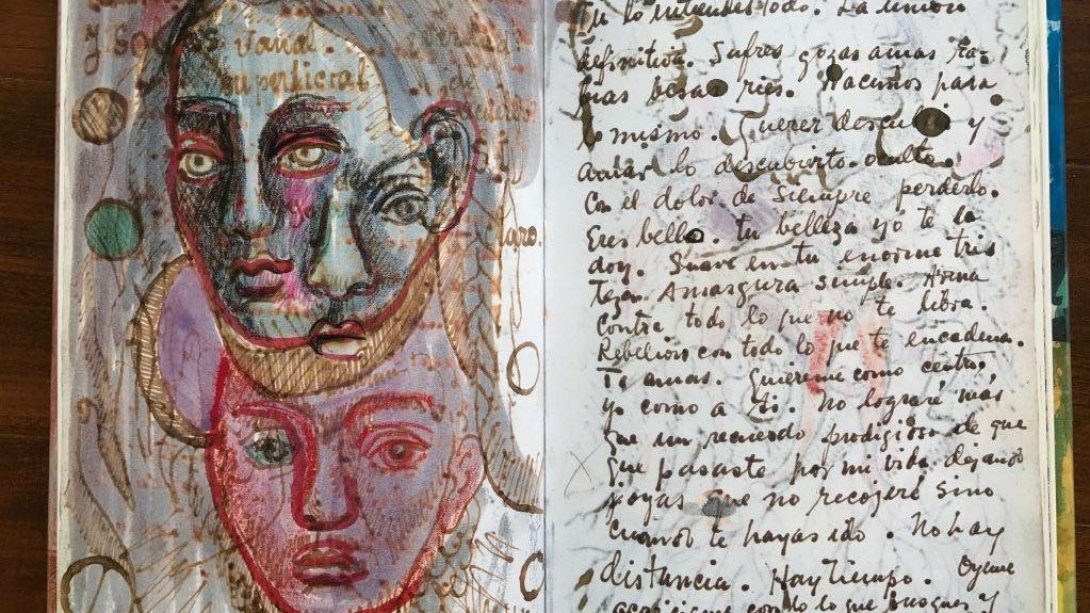 vanal.
superficial
Tu lo entiendes todo. La unión
definitiva. Sufres gozas amas ra-
bias besas ries. Nacimos para
lo mismo. Querer descubrir y
amar lo descubierto. oculto.
Con el dolor de siempre perderlo.
Eres bella. tu belleza yo te la
doy. Suave en tu enorme tris
teza. Amargura simple. Arma
contra todo lo que no te libra.
Rebelion con todo lo que te encadena.
Te amas. Quiereme como centro,
yo como a ti. No lograré más
que un recuerdo prodigioso de que
que pasaste por mi vida dejando
joyas que no recojeré sino
cuando te hayas ido. No hay
distancia. Hay tiempo. Oyeme
lo que busques y